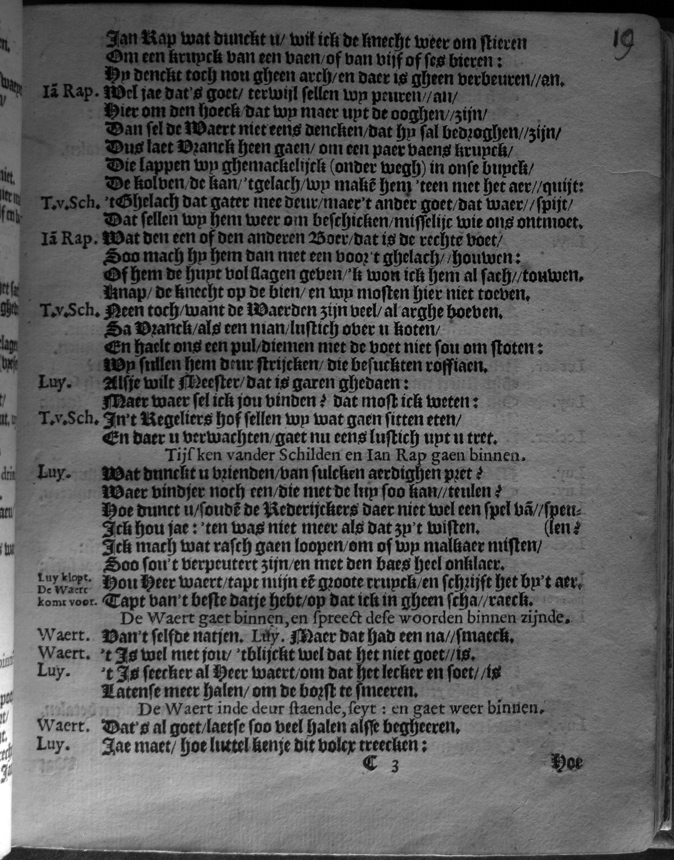 19
Jan Rap wat dunckt u/ wil ick de knecht weer om stieren
Om een kruyck van een vaen/of van vijf of ses bieren:
Hy denckt toch nou gheen arch/en daer is gheen verbeuren//an.
Iã Rap. Wel jae dat's goet/ terwijl sellen wy peuren//an/
Hier om den hoeck/dat wy maer uyt de ooghen//zijn/
Dan sel de Waert niet eens dencken/dat hy sal bedroghen//zijn/
Dus laet Vranck heen gaen/ om een paer vaens kruyck/
Die lappen wy ghemackelijck (onder wegh) in onse buyck/
De kolven/de kan/'tgelach/wy makē hem 'teen met het aer//quijt:
T.v.Sch. 'tGhelach dat gater mee deur/maer't ander goet/dat waer//spijt/
Dat sellen wy hem weer om beschicken/misselijc wie ons ontmoet.
Iã Rap. Wat den een of den anderen Boer/dat is de rechte voet/
Soo mach hy hem dan met een voor't ghelach//houwen:
Of hem de huyt vol slagen geven/'k wou ick hem al sach//touwen.
Knap/ de knecht op de bien/ en wy mosten hier niet toeven.
T.v.Sch. Neen toch/want de Waerden zijn veel/al arghe boeven.
Sa Vranck/als een man/lustich over u koten/
En haelt ons een pul/diemen met de voet niet sou om stoten:
Wy sullen hem deur strijcken/ die besuckten roffiaen.
Luy. Alsje wilt Meester/dat is garen ghedaen:
Maer waer sel ick jou vinden? dat most ick weten:
T.v.Sch. In't Regeliers hof sellen wy wat gaen sitten eten/
En daer u verwachten/gaet nu eens lustich uyt u tret.
Tijsken vander Schilden en Ian Rap gaen binnen.
Luy. Wat dunckt u vrienden/van sulcken aerdighen pret?
Waer vindjer noch een/die met de luy soo kan//teulen?
Hoe dunct u/soudē de Rederijckers daer niet wel een spel vã//speu-
Ick hou jae: 'ten was niet meer als dat zy't wisten. (len?
Ick mach wat rasch gaen loopen/om of wy malkaer misten/
Soo sou't verpeutert zijn/en met den baes heel onklaer.
Luy klopt.
De Waert
komt voor.
Hou Heer waert/tapt mijn eē groote cruyck/en schrijft het by't aer,
Tapt van't beste datje hebt/op dat ick in gheen scha//raeck.
De Waert gaet binnen, en spreect dese woorden binnen zijnde.
Waert. Van't selfde natjen. Luy. Maer dat had een na//smaeck.
Waert. 't Is wel met jou/ 'tblijckt wel dat het niet goet//is.
Luy. 't Is seecker al Heer waert/om dat het lecker en soet//is
Latense meer halen/ om de borst te smeeren.
De Waert inde deur staende, seyt: en gaet weer binnen.
Waert. Dat's al goet/laetse soo veel halen alsse begheeren.
Luy. Jae maet/ hoe luttel kenje dit volcx treecken:
C 3 Hoe